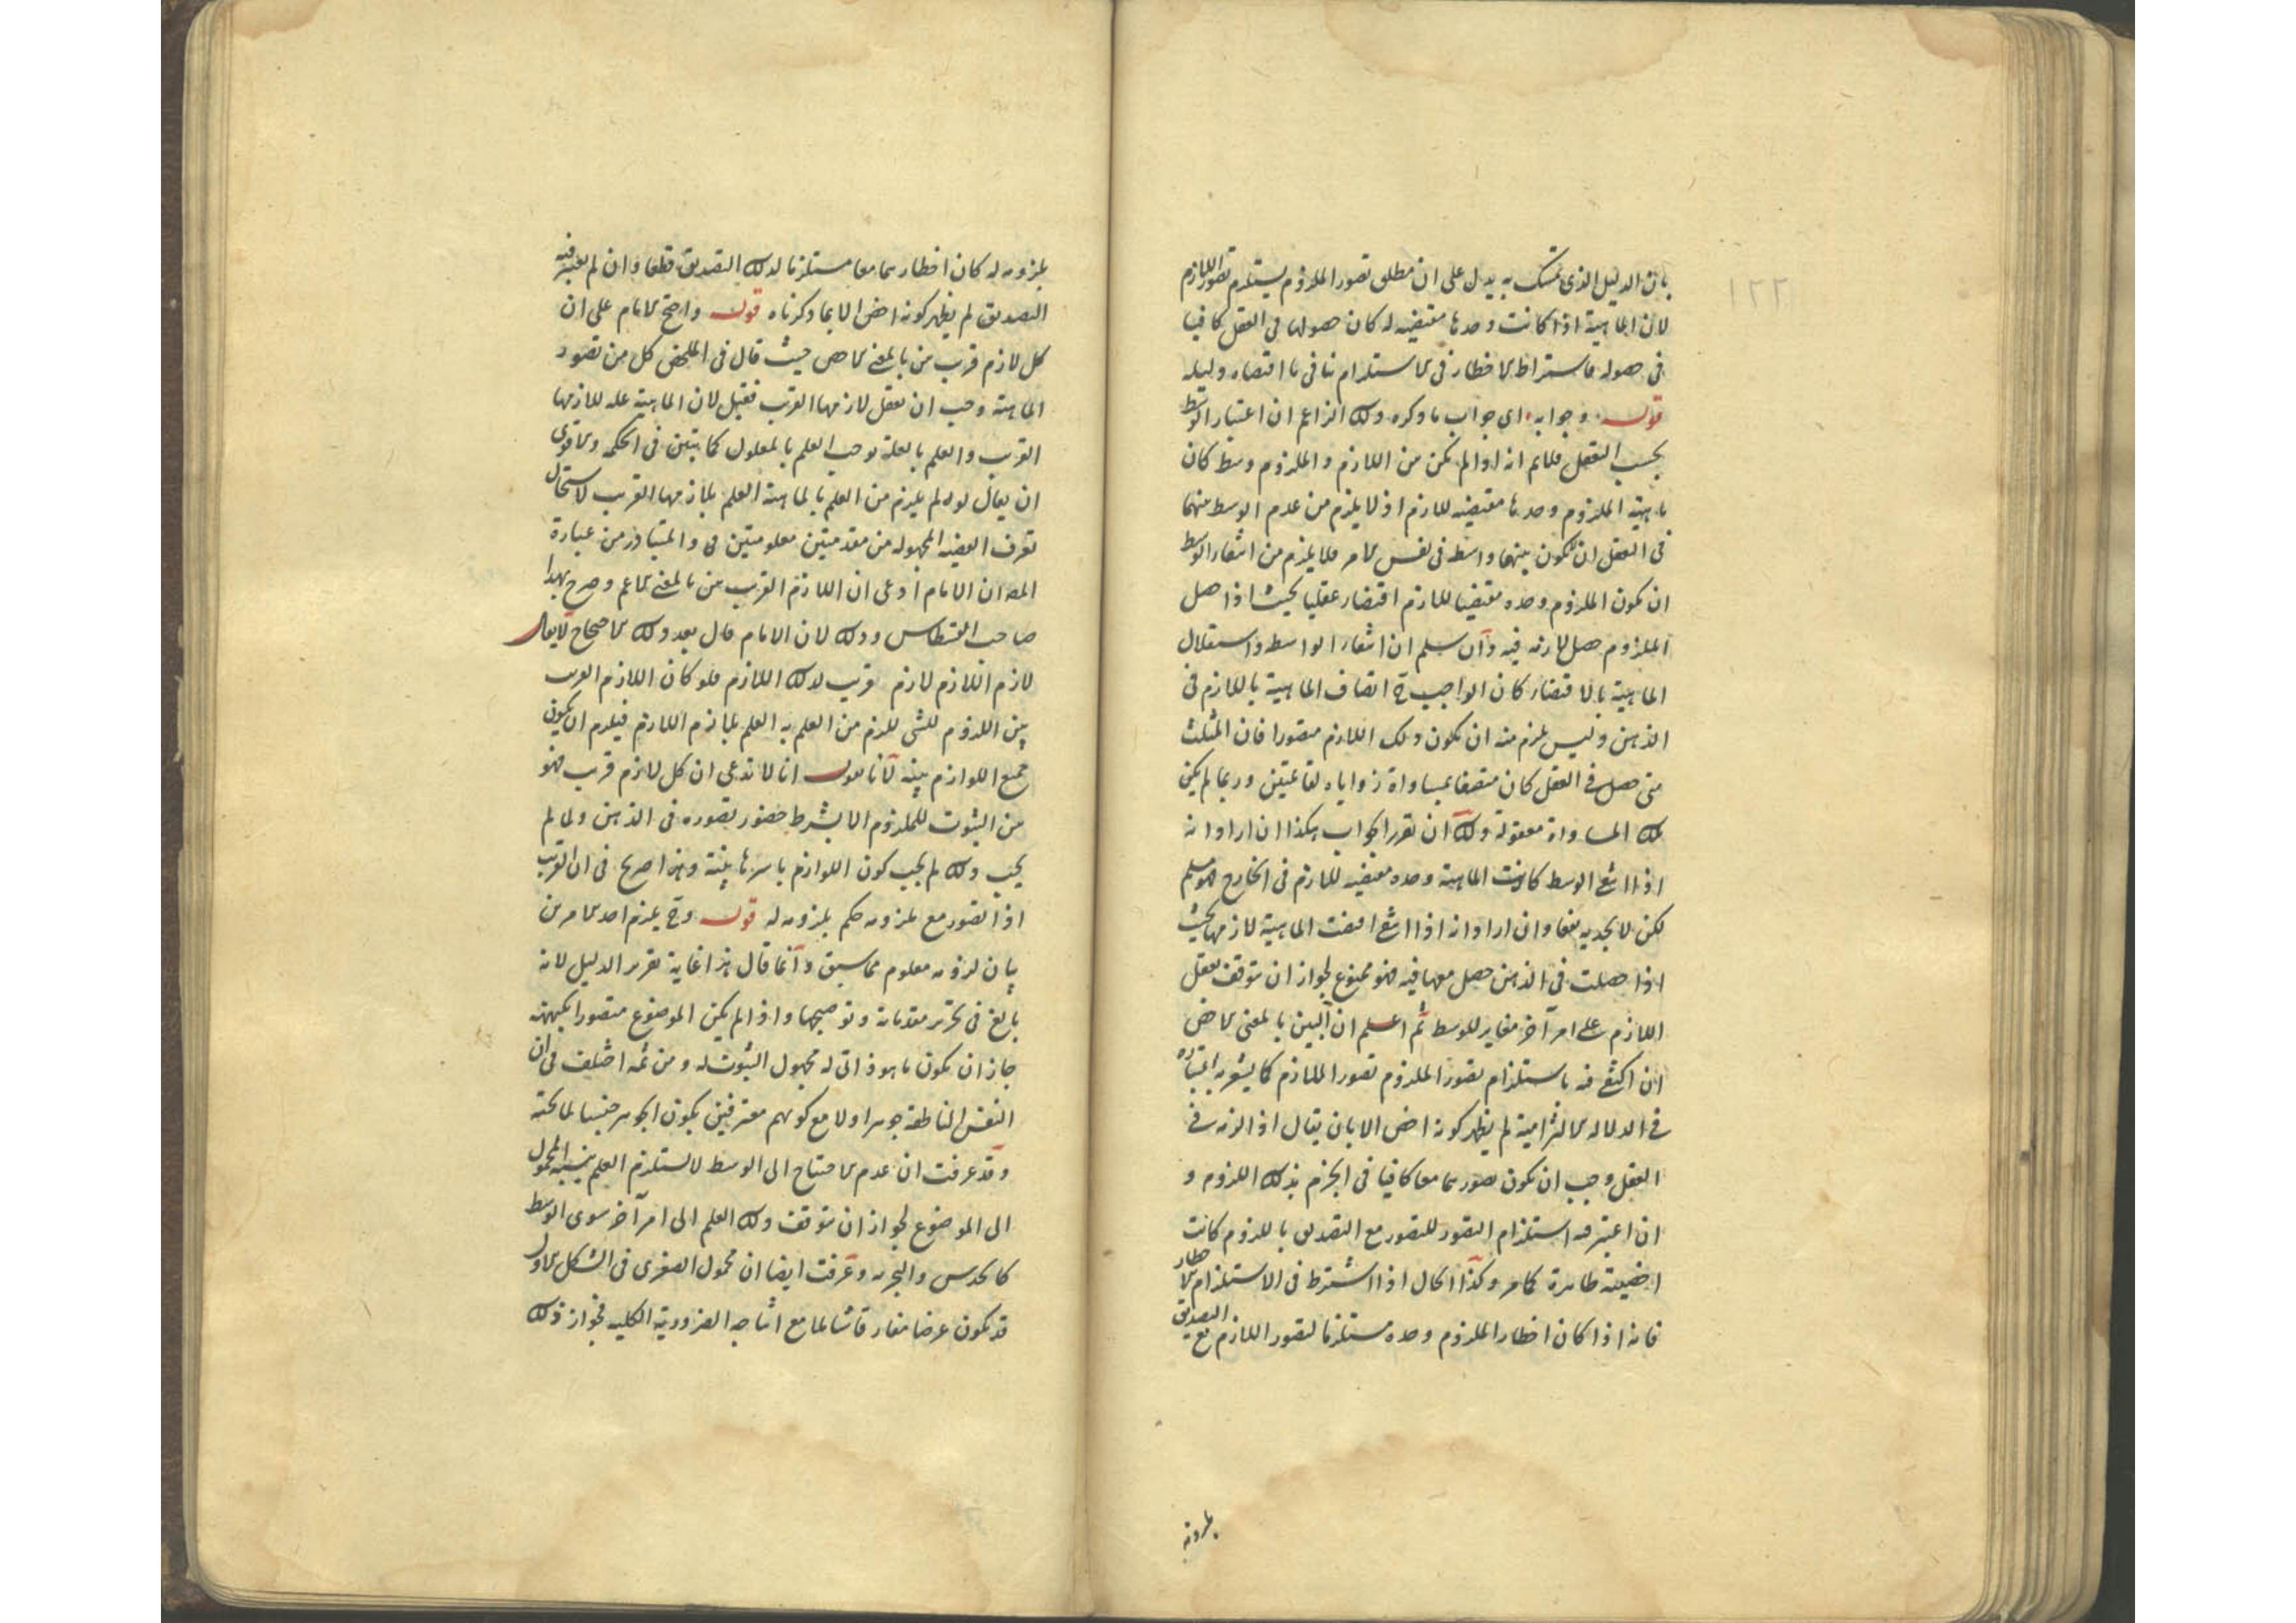 بان الدليل الذى تمسك به يدل على ان مطلق تصور الملزوم يستلزم تصور اللازم
لان الماهية اذا كانت وحدها مقتضيه له كان حصولها فى العقل كافيا
فى حصوله فاشتراط الاخطار فى الاستلزام ينافى ما اقتضاه دليله
قوله وجوابه اى جواب ما ذكره ذلك الزاعم ان اعتبار الوسط
بحسب التعقل فلانم انه اذا لم يكن بين اللازم والملزوم وسط كان
ماهية الملزوم وحدها مقتضيه للازم اذ لا يلزم من عدم الوسط بينهما
فى العقل ان لا يكون بينهما واسطه فى نفس الامر فلا يلزم من انتفاء الوسط
ان يكون الملزوم وحده مقتضيا للازم اقتضاء عقليا بحيث اذا حصل
الملزوم حصل لازمه فيه وان سلم ان انتفاء الواسطه واستقلال
الماهية بالاقتضاء كان الواجب ح اتصاف الماهية باللازم فى
الذهن وليس يلزم منه ان يكون ذلك اللازم متصورا فان المثلث
متى حصل فى العقل كان متصفا بمساواة زواياه لقائمتين وربما لم يكن
تلك المساواة معقولة ولك ان تقرر الجواب هكذا ان اراد انه
اذا انتفى الوسط كانت الماهية وحده مقتضيه للازم فى الخارج فهو مسلم
لكن لا يجديه نفعا وان اراد انه اذا انتفى اقتضت الماهية لازمها بحيث
اذا حصلت فى الذهن حصل معها فيه فهو ممنوع لجواز ان يتوقف تعقل
اللازم على امر آخر مغاير للوسط ثم اعلم ان البين بالمعنى الاخص
ان اكتفى فيه باستلزام تصور الملزوم تصور اللازم كما يشعر به اعتباره
فى الدلاله الالتزامية لم يظهر كونه اخص الا بان يقال اذا لزمه فى
العقل وجب ان يكون تصورهما معا كافيا فى الجزم بذلك اللزوم و
ان اعتبر فيه استلزام التصور للتصور مع التصديق باللزوم كانت
اخصيته ظاهرة كما مر وكذا الحال اذا اشترط فى الاستلزام الاخطار
فانه اذا كان اخطار الملزوم وحده مستلزما لتصور اللازم مع التصديق
بلزومه
بلزومه له كان اخطارهما معا مستلزما لذلك التصديق قطعا وان لم يعتبر فيه
التصديق لم يظهر كونه اخص الا بما ذكرناه قوله واحتج الامام على ان
كل لازم قريب بين بالمعنى الاخص حيث قال فى الملخص كل من تصور
الماهية وجب ان يعقل لازمها القريب فقيل لان الماهية علة للازمها
القريب والعلم بالعلة يوجب العلم بالمعلول كما تبين فى الحكمه والاقوى
ان يقال لو لم يلزم من العلم بالماهية العلم بلازمها القريب لاستحال
تعرف القضيه المجهوله من مقدمتين معلومتين والمتبادر من عبارة
المص ان الامام ادعى ان اللازم القريب بين بالمعنى الاعم وصرح بهذا
صاحب القسطاس وذلك لان الامام قال بعد ذلك الاحتجاج لا يقال
لازم اللازم لازم قريب لذلك اللازم فلو كان اللازم القريب
بين اللزوم للشى للزم من العلم به العلم بلازم اللازم فيلزم ان يكون
جميع اللوازم بينه لانا نقول انا لا ندعى ان كل لازم قريب فهو
بين الثبوت للملزوم الا بشرط حضور تصوره فى الذهن ولما لم
يجب ذلك لم يجب كون اللوازم باسرها بينة وهذا صريح فى ان القريب
اذا تصور مع ملزومه حكم بلزومه له قوله وح يلزم احد الامرين
بيان لزومه معلوم مما سبق وانما قال هذا غاية تقرير الدليل لانه
بالغ فى تحرير مقدماته وتوضيحها واذا لم يكن الموضوع متصورا بكنهه
جاز ان يكون ما هو ذاتى له مجهول الثبوت له ومن ثمه اختلف فى ان
النفس الناطقة جوهر او لا مع كونهم معترفين بكون الجوهر جنسا لما تحته
وقد عرفت ان عدم الاحتياج الى الوسط لا يستلزم العلم بنسبة المحمول
الى الموضوع لجواز ان يتوقف ذلك العلم الى امر آخر سوى الوسط
كالحدس والتجربه وعرفت ايضا ان محمول الصغرى فى الشكل الاول
قد يكون عرضا مفارقا شاملا مع انتاجه الضرورية الكليه فجواز ذلك